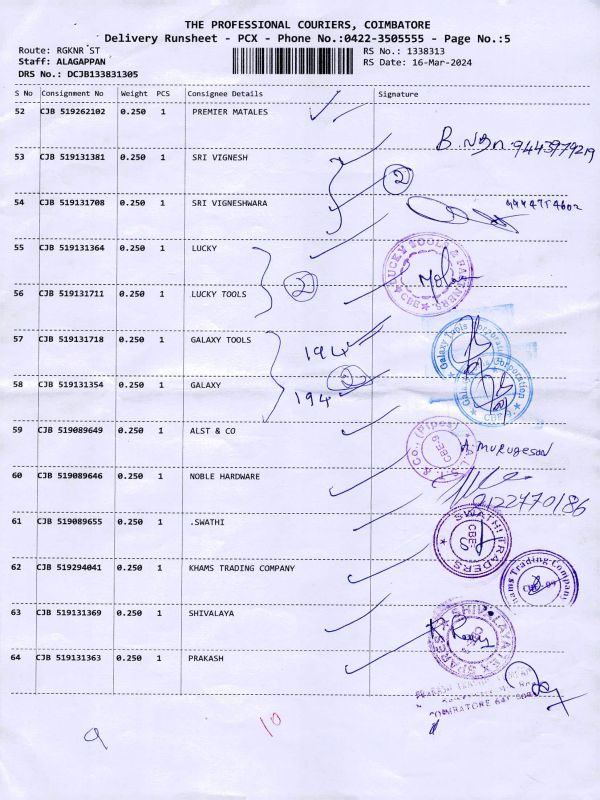 THE PROFESSIONAL COURIERS, COIMBATORE
Delivery Runsheet - PCX - Phone No.:0422-3505555 - Page No.:5
Route: RGKNR ST RS No.: 1338313
Staff: ALAGAPPAN RS Date: 16-Mar-2024
DRS No.: DCJB133831305
S No Consignment No Weight PCS Consignee Details Signature
52 CJB 519262102 0.250 1 PREMIER MATALES
9443979219
53 CJB 519131381 0.250 1 SRI VIGNESH
2
54 CJB 519131708 0.250 1 SRI VIGNESHWARA
55 CJB 519131364 0.250 1 LUCKY
LUCKY TOOLS & FASTNERS
CBE
56 CJB 519131711 0.250 1 LUCKY TOOLS
2
57 CJB 519131718 0.250 1 GALAXY TOOLS
194
Galaxy Tools Corporation
58 CJB 519131354 0.250 1 GALAXY
2
194
Corporation
59 CJB 519089649 0.250 1 ALST & CO
& Co., (Pipes)
CBE-9
A. MURUGESAN
60 CJB 519089646 0.250 1 NOBLE HARDWARE
9122470186
61 CJB 519089655 0.250 1 .SWATHI
SWATHI TRADERS
CBE
62 CJB 519294041 0.250 1 KHAMS TRADING COMPANY
hams Trading Company
63 CJB 519131369 0.250 1 SHIVALAYA
SHIVALAYA
SPARES
64 CJB 519131363 0.250 1 PRAKASH
COIMBATORE
9
10